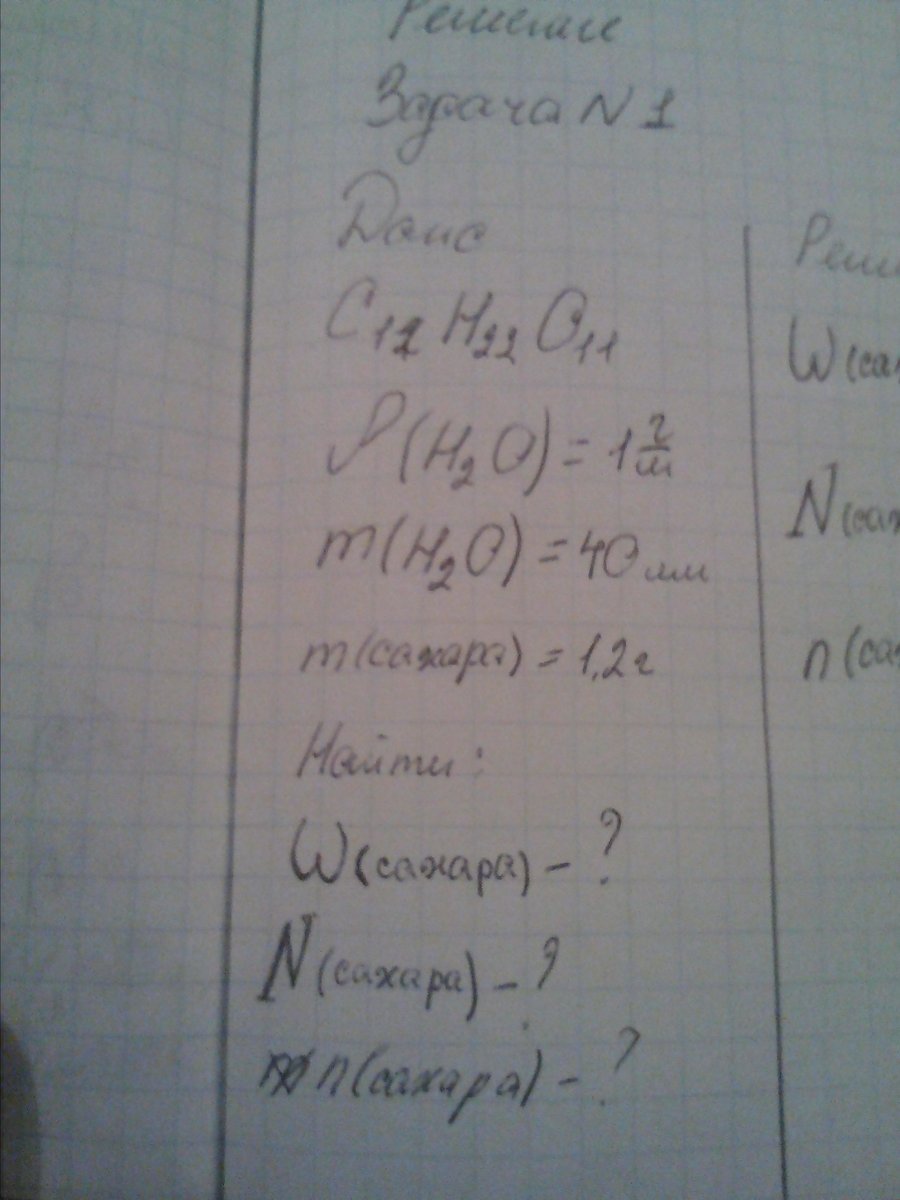 Решение
Задача N 1
Дано
C₁₂ H₂₂ O₁₁
ρ(H₂O) = 1 г/м
m(H₂O) = 40 мл
m(сахара) = 1,2г
Найти:
W(сахара) - ?
N(сахара) - ?
n(сахара) - ?
W(са
N(сах
n(са